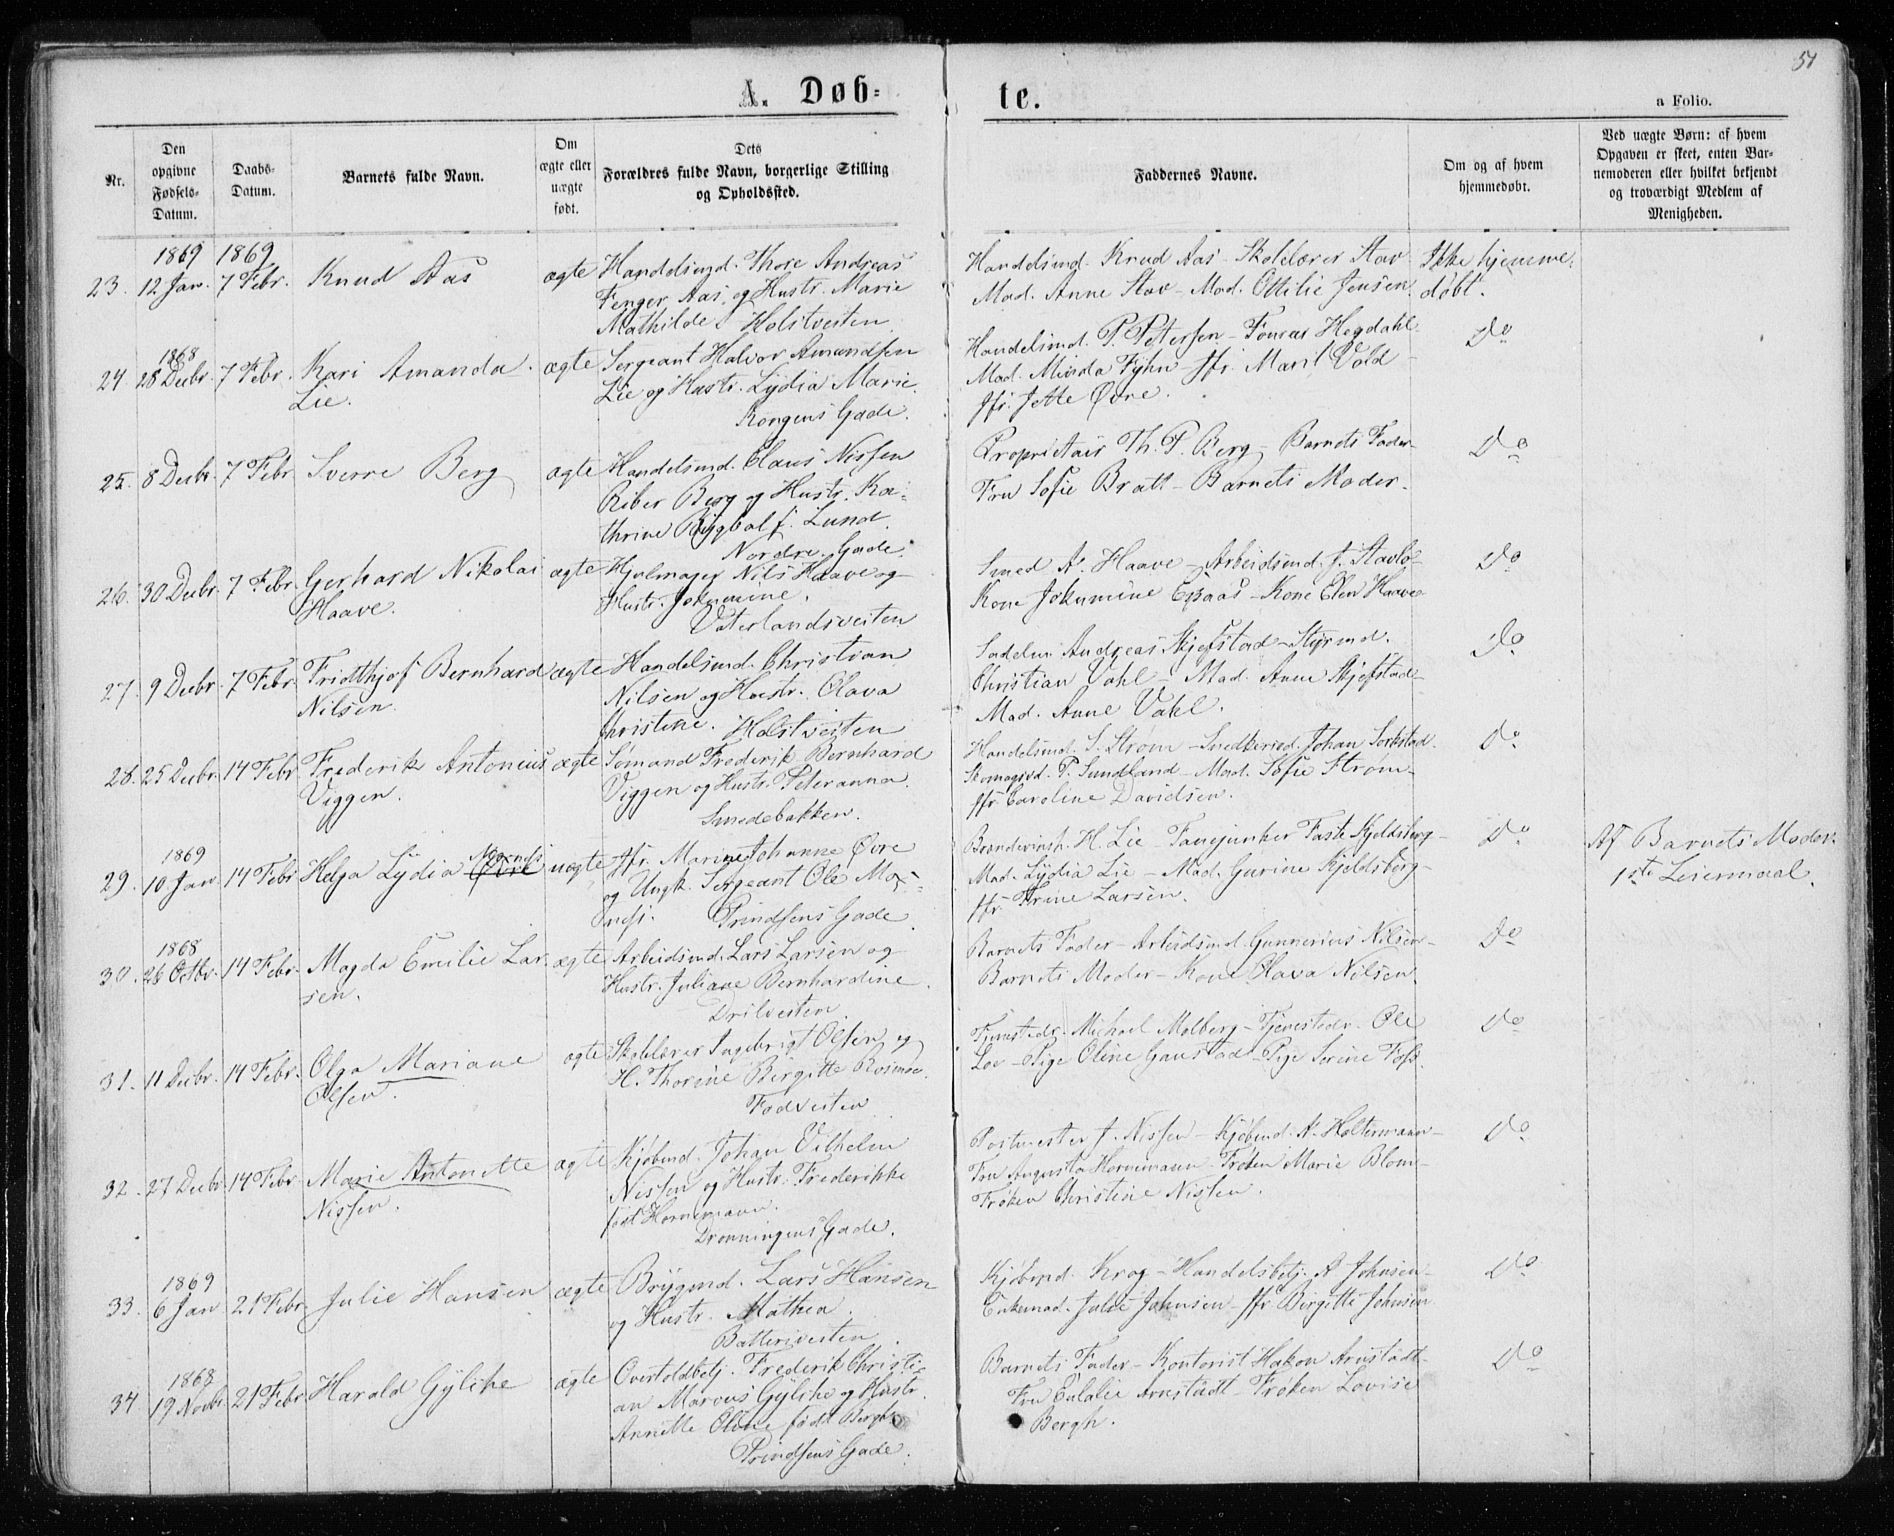 51
A. Døb-te.
a Folio.
Nr.
Den opgivne Fødsels-Datum.
Daabs-Datum.
Barnets fulde Navn.
Om ægte eller uægte født.
Dets Forældres fulde Navn, borgerlige Stilling og Opholdssted.
Faddernes Navne.
Om og af hvem hjemmedøbt.
Ved uægte Børn: af hvem Opgaven er skeet, enten Barnemoderen eller hvilket bekjendt og troværdigt Medlem af Menigheden.
1869 1869
23. 12 Jan. 7 Febr. Knud Aas ægte Handelsmd. Thore Andreas
Fenger Aas, og Hustr. Marie
Mathilde Holstveiten
Handelsmd. Knud Aas - Skolelærer Stav
Mad. Anne Stav - Mad. Ottilie Jensen.
Ikke hjemme-
døbt.
1868
24 28 Decbr. 7 Febr. Kari Amanda
Lie.
ægte Sergeant Halvor Amundsen
Lie og Hustr. Lydia Marie.
Kongens Gade.
Handelsmd. P. Petersen - Fourer Hegdahl
Mad. Minda Fyhn - Jfr. Marit Vold -
Jfr. Jette Øvre.
Do
25. 8 Decbr. 7 Febr Sverre Berg ægte Handelsmd. Claus Nissen
Riber Berg og Hustr. Ka-
thrine f. Lund.
Nordre Gade.
Proprietair Th. P. Berg - Barnets Fader
Fru Sofie Bratt - Barnets Moder.
Do
26. 30 Decbr. 7 Febr. Gerhard Nikolai
Haave.
ægte Hjulmager Nils Haave og
Hustr. Jokumine.
Vaterlandsveiten
Smed A. Haave - Arbeidsmd. J. Stavlö-
Kone Jokumine Espaas - Kone Elen Haave
Do
27. 9 Decbr. 7 Febr. Fridthjof Bernhard
Nilsen.
ægte Handelsmd. Christian
Nilsen og Hustr. Olava
Christine. Holstveiten
Andreas Skjefstad - Styrmd.
Christian Vahl - Mad. Anne Skjefstad
Mad. Anne Vahl.
Do
28. 25 Decbr. 14 Febr Frederik Antonius
Viggen.
ægte Sømand Frederik Bernhard
Viggen og Hustr. Peteranna.
Smedebakken.
Handelsmd. S. Strøm - Snedkersvd. Johan Sorkstad.
P. Sundland - Mad. Sofie Strøm -
Jfr Caroline Davidsen.
Do
1869
29. 10 Jan 14 Febr Helga Lydia
Øvre
uægte Jfr. Marine Johanne Øvre
og Ungk. Sergeant Ole Mo-
Prindsens Gade
Brændevinsh. H. Lie - Fanejunker Faste Kjeldsberg -
Mad. Lydia Lie - Mad. Gurine Kjeldsberg -
Jfr. Trine Larsen.
Do
Af Barnets Moder.
1ste Leiermaal.
1868
30. 26 Octbr. 14 Febr. Magda Emilie Lar-
sen.
ægte Arbeidsmd. Lars Larsen og
Hustr. Juliane Bernhardine.
Drilveiten
Barnets Fader - Arbeidsmd. Gunnerius Nilsen -
Barnets Moder - Kone Olava Nilsen.
Do
31. 11 Decbr. 14 Febr. Olga Mariane
Olsen.
ægte Skolelærer Ingebrigt Olsen og
H. Thorine Birgitte
Fodveiten
Tjenstedr. Michael Molberg - Tjenestedr. Ole
Loe - Pige Oline Gaustad - Pige Serine Foss.
Do
32. 27 Decbr 14 Febr Marie Antonette
Nissen.
ægte Kjøbmd. Johan Vilhelm
Nissen og Hustr. Frederikke
født Hornemann.
Dronningens Gade.
Postmester J. Nissen - Kjøbmd. A. Holtermann -
Fru Augusta Hornemann - Frøken Marie Blom -
Frøken Christine Nissen.
Do
1869
33. 6 Jan 21 Febr Julie Hansen ægte Brygmd. Lars Hansen
og Hustr. Mathea.
Batteriveiten.
Kjøbmd. Krog - Handelsbetj. A. Johnsen -
Enkemad. Julie Johnsen - Jfr Birgitte Johnsen
Do
1868
34 19 Novbr. 21 Febr Harald Gylche ægte Overtoldbetj. Frederik Christi-
an Marcus Gylche og Hustr.
Annette Oline født Bergh
Prindsens Gade.
Barnets Fader - Kontorist Hakon Arnstadt -
Fru Eulalie Arnstadt - Frøken Lovise
Bergh.
Do